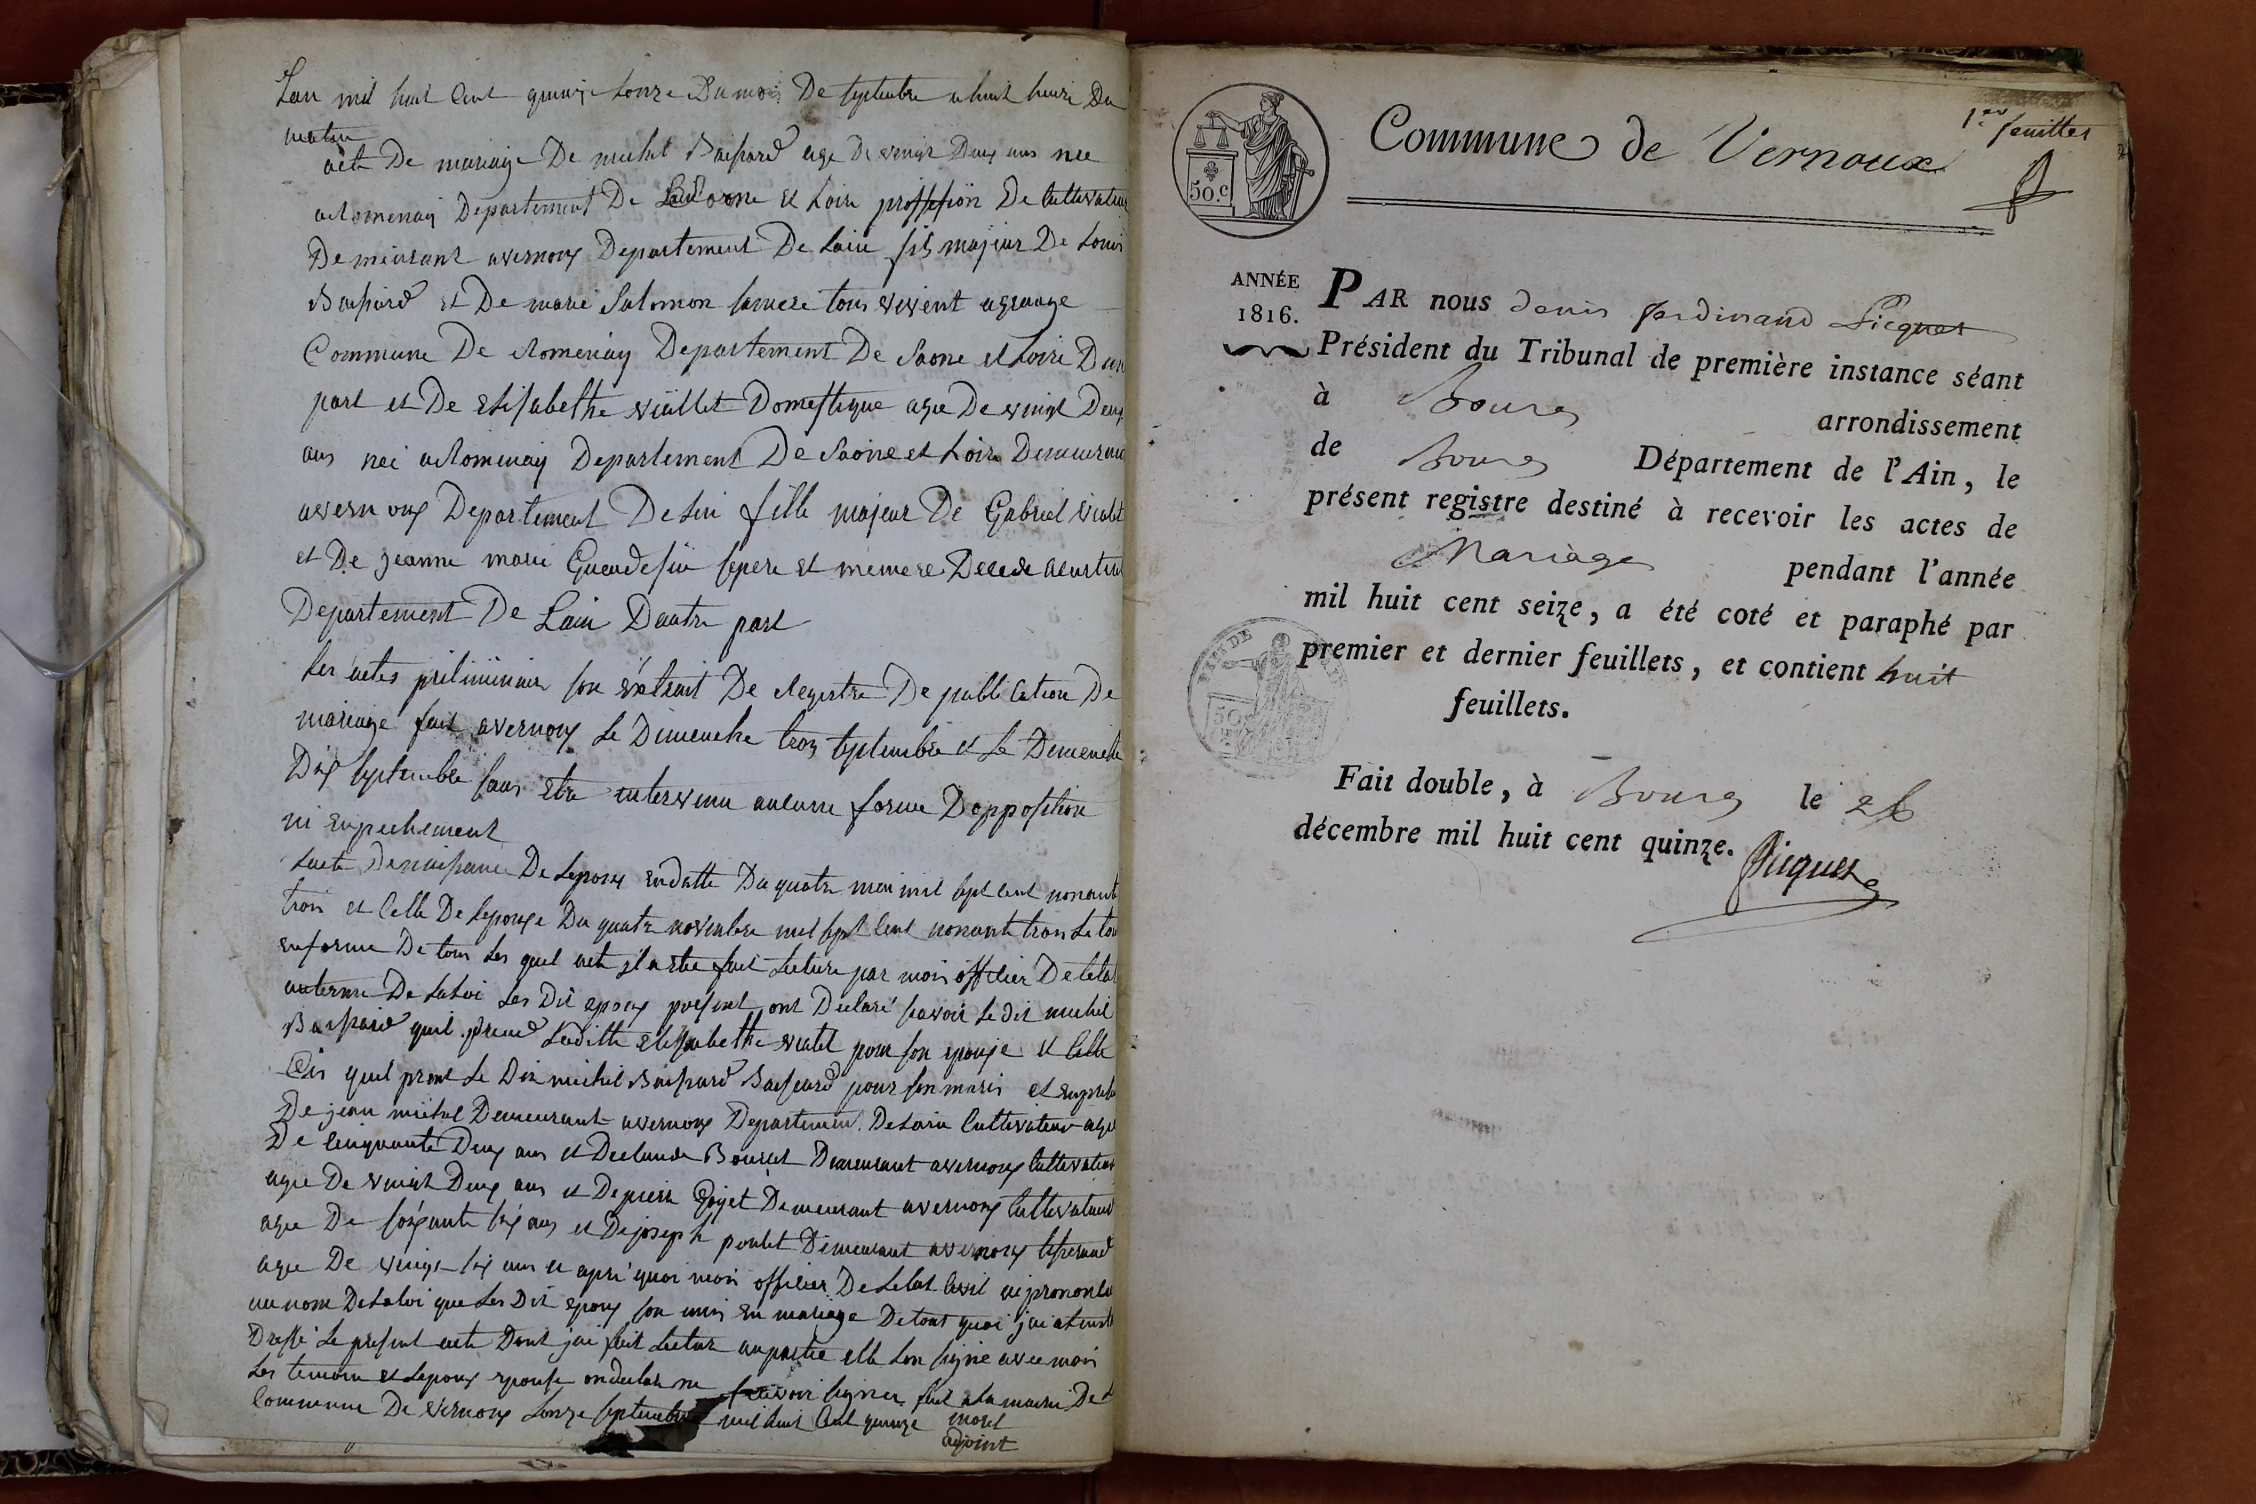 Lan mil huit Cent quinze Lonze Du mois De septembre a huit heure Du
matin
acte De mariage De michel Baissard age De vingt Deux ans nee
a Romenay Departement De Saone et Loire proffession De Cultivateur
Demeurant a vernoux Departement De Lain fils majeur De Louis
Baissard et De marie Salomon samere tous vivent a grange
Commune De Romenay Departement De Saone et Loire Dune
part et De Elisabethe viallet Domestique agee De vingt Deux
ans nee a Romenay Departement De Saone et Loire Demeurant
a vernoux Departement De Lain fille majeur De Gabriel vialet
et De jeanne marie sepere et memere Decede a Curtia
Departement De Lain Dautre part
Les actes preliminaire son Extrait De Registre De publication De
mariage fait a vernoux Le Dimenche trois septembre et Le Dimenche
Dix septembre sans Etre intervenu aucune forme Dopposition
ni enpechement
Lacte De naissance De Lepoux en datte Du quatre mai mil sept cent nonante
trois et Celle De Lepouse Du quatre novembre mil sept Cent nonante trois Le tou
enforme De tous Les quel acte il a Ete fait Lecture par moi officier De letat
auterme De La Loi Les Dit epoux present ont Declaré savoir Le dit michel
Baissard quil prend Laditte Elisabethe vialet pour son epouse et Celle
Cis quel prent Le Dit michel Baissard Baissard pour son maris et en presance
De jean michel Demeurant a vernoux Departement De Lain Cultivateur age
De Cinquante Deux ans et De claude Bourcet Demeurant a vernoux Cultivateur
age De vingt Deux ans et De pierre Demeurant a vernoux Cultivateur
age De soixante six ans et De joseph poulet Demeurant a vernoux tisserand
age De vingt six ans et apré quoi moi officier De Letat Civil ai prononce
au nom De La loi que Les Dit epoux son unis en mariage De tout quoi jai
Dressé Le present acte Dont jai fait Lecture au partie elle Lon signe avec moi
Les temoin et Lepoux epouse on declare ne savoir signer fait a La mairie De L
Commune De vernoux Lonze septembre mil huit Cent quinze morel
adjoint
1.er feuillet
50.C
Commune de Vernoux
ANNÉE
1816.
PAR nous denis ferdinand Picquet
Président du Tribunal de première instance séant
à Bourg arrondissement
de Bourg Département de l'Ain, le
présent registre destiné à recevoir les actes de
Mariage pendant l'année
mil huit cent seize, a été coté et paraphé par
premier et dernier feuillets, et contient huit
feuillets.
Fait double, à Bourg le 26
décembre mil huit cent quinze.
Picquet